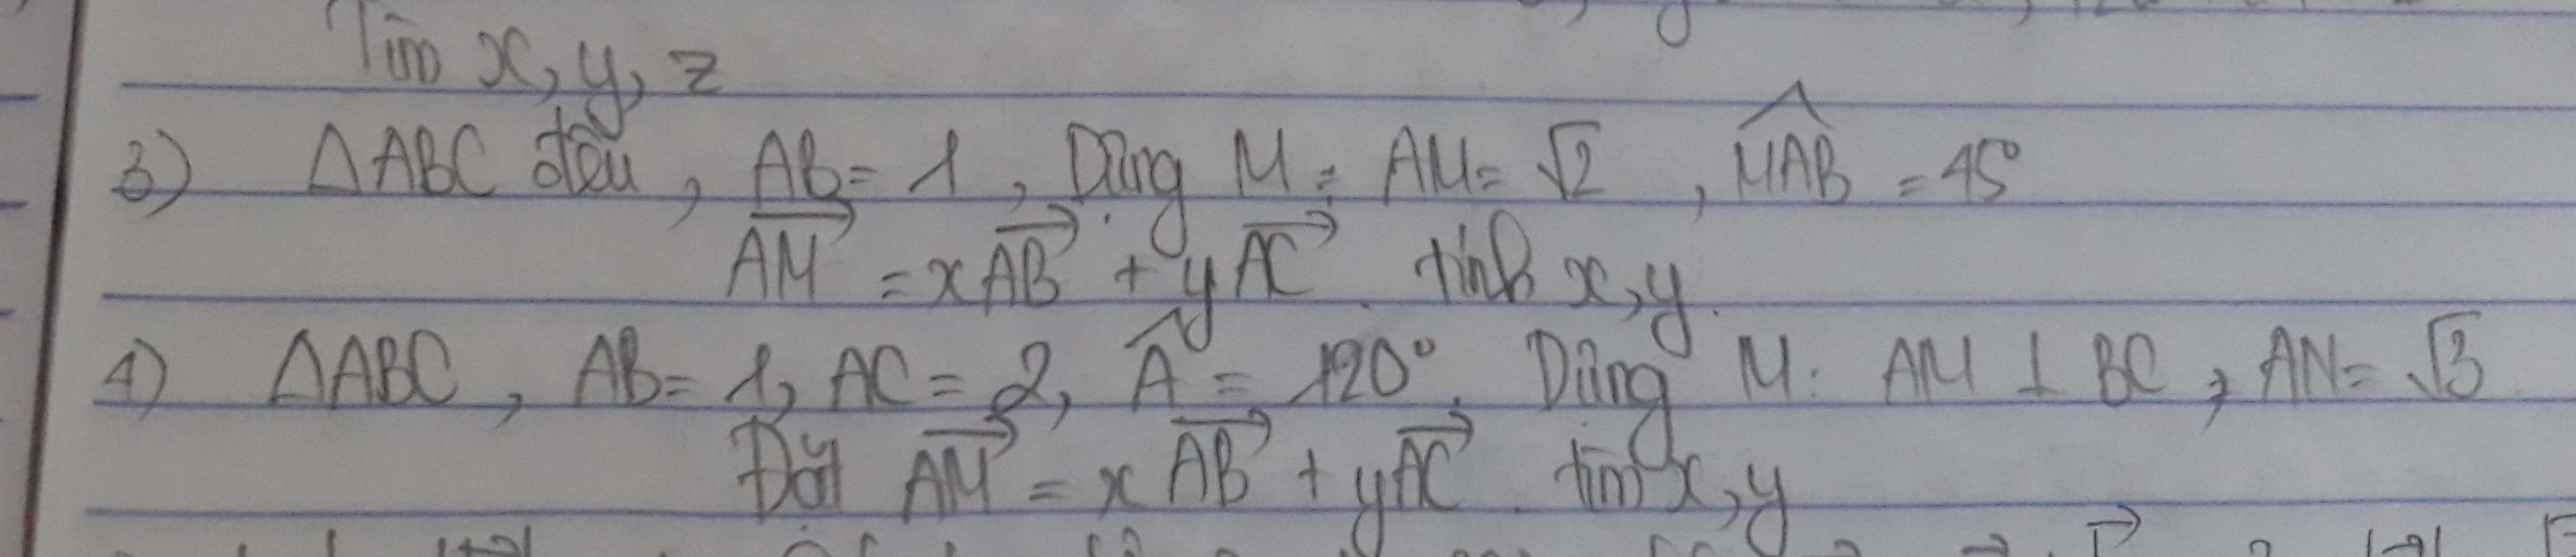 Tìm x, y, z
3) ΔABC đều, AB = 1, Dựng M: AM = √2, \widehat{MAB} = 45°
\overrightarrow{AM} = x\overrightarrow{AB} + y\overrightarrow{AC}. tính x, y.
4) ΔABC, AB = 1, AC = 2, \widehat{A} = 120°. Dựng M: AM ⊥ BC, AN = √3
Đặt \overrightarrow{AM} = x\overrightarrow{AB} + y\overrightarrow{AC}. tìm x, y